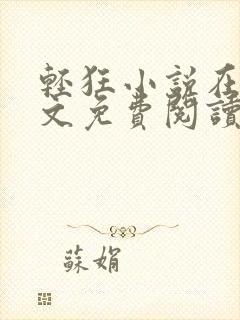 輕狂小說在
文免費閱讀
蘇娟